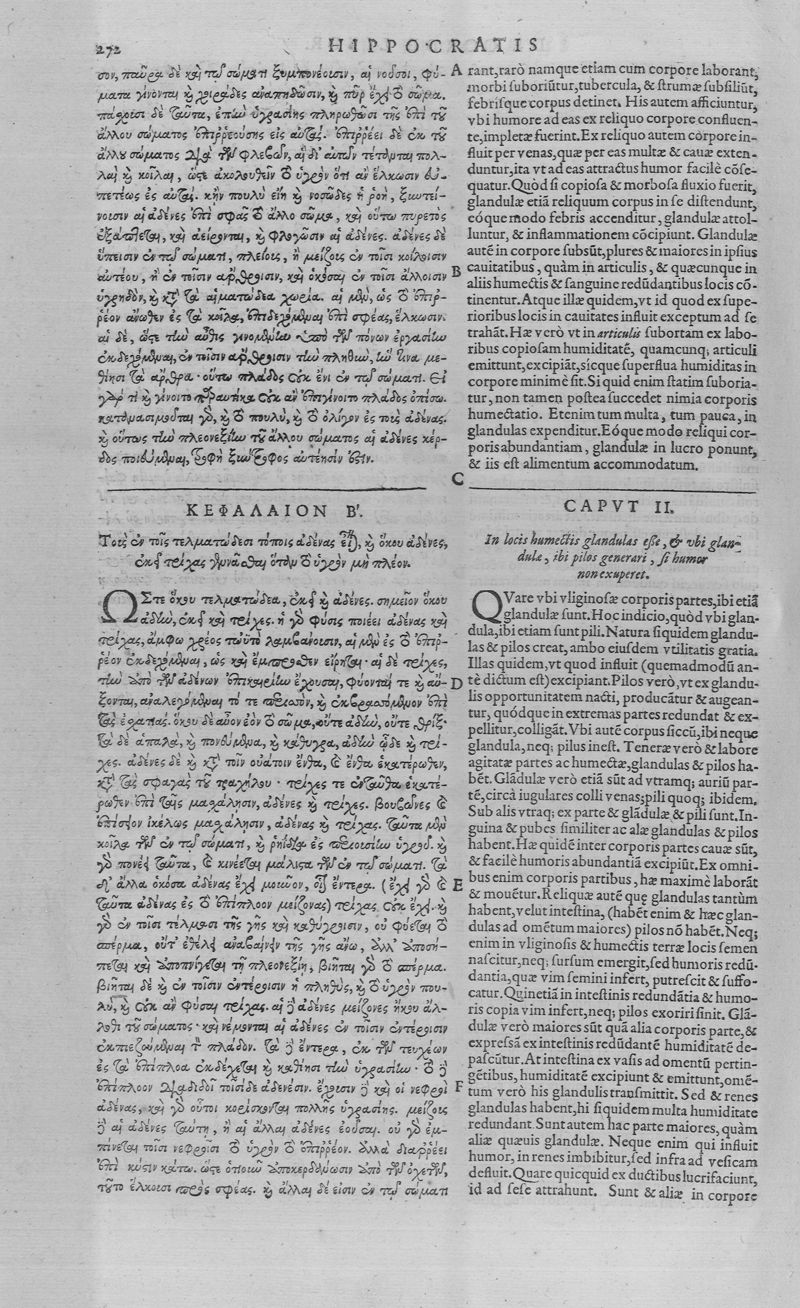 272
HIPPOCRATIS
σον, παῦρα δὲ καὶ τῷ σώματι ξυμπονέουσιν, αἱ νοῦσοι, φύ-
ματα γίνονται καὶ χοιράδες ἀναπηδῶσιν, καὶ πῦρ ἔχει τὸ σῶμα,
πάσχουσι δὲ ταῦτα, ἐπὴν ὑγρασίης πληρωθῶσι τῆς ἀπὸ τοῦ
ἄλλου σώματος ἐπιρρεούσης εἰς αὐτάς. ἐπιρρέει δὲ ἐκ τοῦ
ἄλλου σώματος διὰ τῶν φλεβῶν, αἳ δι' αὐτῶν τέτανται πολ-
λαὶ καὶ κοῖλαι, ὥστε ἀκολουθεῖν τὸ ὑγρὸν ὅτι ἂν ἕλκωσιν εὐ-
πετέως ἐς αὐτάς. κἢν πουλὺ εἴη καὶ νοσῶδες ἡ ῥοὴ, ξυντεί-
νουσιν αἱ ἀδένες ἐπὶ σφᾶς τὸ ἄλλο σῶμα, καὶ οὕτω πυρετὸς
ἐξάπτεται, καὶ ἀείρονται, καὶ φλογῶσιν αἱ ἀδένες. ἀδένες δὲ
ὕπεισιν ἐν τῷ σώματι, πλείους, ἢ μείζους ἐν τοῖσι κοίλοισιν
αὐτέου, ἢ ἐν τοῖσιν ἄρθροισιν, καὶ ὁκόσαι ἐν τοῖσι ἄλλοισιν
ὑγρηδὸν, καὶ κατὰ τὰ αἱματώδεα χωρία. αἱ μὲν, ὡς τὸ ἐπιρ-
ρέον ἄνωθεν ἐς τὰ κοῖλα, ἐπιδεχόμεναι ἐπὶ σφέας, ἕλκωσιν.
αἱ δὲ, ὥστε τὴν αὖθις γινομένην ὑπὸ τῶν πόνων ἐργασίην
ἐκδεχόμεναι, ἐν τοῖσιν ἄρθροισιν τὴν πληθὺν, ἣν τινα με-
θίησι τὰ ἄρθρα· οὕτω πλάδος οὐκ ἔνι ἐν τῷ σώματι. Εἰ
γάρ τι καὶ γίνοιτο παραυτίκα οὐκ ἂν ἐπιγίνοιτο πλάδος ὀπίσω.
καταμασιμοῦται γὰρ, καὶ τὸ πουλὺ, καὶ τὸ ὀλίγον ἐς τοὺς ἀδένας.
καὶ οὕτως τὴν πλεονεξίην τοῦ ἄλλου σώματος αἱ ἀδένες κέρ-
δος ποιεύμεναι, τροφὴ ξύντροφος αὐτέῃσιν ἐστιν.
ΚΕΦΑΛΑΙΟΝ Β'.
Τοὺς ἐν τοῖς τελματώδεσι τόποις ἀδένας εἶναι, καὶ ὅκου ἀδένες,
ἐκεῖ τρίχας γεννᾶσθαι ὅταν τὸ ὑγρὸν μὴ πλέον.
ΩΣΤΕ ὅκου τελματώδεα, ἐκεῖ καὶ ἀδένες. σημεῖον ὅκου
ἀδὴν, ἐκεῖ καὶ τρίχες. ἡ γὰρ φύσις ποιέει ἀδένας καὶ
τρίχας, ἄμφω χρέος τωὐτὸ λαμβάνουσιν, αἱ μὲν ἐς τὸ ἐπιρ-
ρέον ἐκδεχόμεναι, ὡς καὶ ἔμπροσθεν εἴρηται· αἱ δὲ τρίχες,
τὴν ἀπὸ τῶν ἀδένων ἐπικαιρίην ἔχουσαι, φύονταί τε καὶ αὔ-
ξονται, ἀναλεγόμεναι τό τε περισσὸν, καὶ ἐκβρασσόμενον ἐπὶ
τὰς ἐσχατιάς. ὅκου δὲ αὖον ἐὸν τὸ σῶμα, οὔτε ἀδὴν, οὔτε θρίξ·
τὰ δὲ ἁπαλὰ, καὶ πονεύμενα, καὶ κάθυγρα, ἀδὴν ὧδε καὶ τρί-
χες. ἀδένες δὲ καὶ κατὰ τῶν οὐάτων ἔνθα, καὶ ἔνθα ἑκατέρωθεν,
κατὰ τὰς σφαγὰς τοῦ τραχήλου· τρίχες τε ἐνταῦθα ἑκατέ-
ρωθεν· ἐπὶ τῇς μασχάλῃσιν, ἀδένες καὶ τρίχες. βουβῶνες καὶ
ἐπίσειον ἰκέλως μασχάλῃσιν, ἀδένας καὶ τρίχας. ταῦτα μὲν
κοῖλα τῶν ἐν τῷ σώματι, καὶ ῥηίδια ἐς περιουσίην ὑγροῦ. καὶ
γὰρ πονέει ταῦτα, καὶ κινέεται μάλιστα τῶν ἐν τῷ σώματι. τὰ
δ' ἄλλα ὁκόσα ἀδένας ἔχει μοῦνον, οἷον ἔντερα. (ἔχει γὰρ καὶ
ταῦτα ἀδένας ἐς τὸ ἐπίπλοον μείζονας) τρίχας οὐκ ἔχει. καὶ
γὰρ ἐν τοῖσι τέλμασι τῆς γῆς καὶ καθύγροισιν, οὐ φύεται τὸ
σπέρμα, οὔτ' ἐθέλει ἀναβαίνειν τῆς γῆς ἄνω, ἀλλ' ἀποσή-
πεται καὶ ἀποπνίγεται τῇ πλεονεξίῃ, βιῆται γὰρ τὸ σπέρμα.
βιῆται δὲ καὶ ἐν τοῖσιν ἐντέροισιν ἡ πληθὺς, καὶ τὸ ὑγρὸν που-
λὺ, καὶ οὐκ ἂν φύσαι τρίχας. αἱ δὲ ἀδένες μείζονες ἤκου ἄλ-
λοθι τοῦ σώματος· καὶ νέμονται αἱ ἀδένες ἐν τοῖσιν ἐντέροισιν
ἐκπιεζούμεναι τὸν πλάδον. τὰ δὲ ἔντερα, ἐκ τῶν τευχέων
ἐς τὰ ἐπίπλοα ἐκδέχεται καὶ καθίησι τὴν ὑγρασίην· τὸ δὲ
ἐπίπλοον διαδιδοῖ τοῖσιδε ἀδενέσιν. ἔχουσιν δὲ καὶ οἱ νεφροὶ
ἀδένας, καὶ γὰρ οὗτοι κορίσκονται πολλῆς ὑγρασίης. μείζους
δὲ αἱ ἀδένες ταύτῃ, ἢ αἱ ἄλλαι ἀδένες ἐοῦσαι. οὐ γὰρ ἐμ-
πίνεται τοῖσι νεφροῖσι τὸ ὑγρὸν τὸ ἐπιρρέον. ἀλλὰ διαρρέει
ἐπὶ κύστιν κάτω. ὥστε ὁτιοῦν ἀποκερδάνωσιν ἀπὸ τῶν ὀχετῶν,
τοῦτο ἕλκουσι πρὸς σφέας. καὶ ἄλλαι δέ εἰσιν ἐν τῷ σώματι
A
B
C
D
E
F
rant, rarò namque etiam cum corpore laborant,
morbi suboriūtur, tubercula, & strumæ subsiliūt,
febrisque corpus detinet. His autem afficiuntur,
vbi humore ad eas ex reliquo corpore confluen-
te, impletæ fuerint. Ex reliquo autem corpore in-
fluit per venas, quæ per eas multæ & cauæ exten-
duntur, ita vt ad eas attractus humor facilè cōse-
quatur. Quòd si copiosa & morbosa fluxio fuerit,
glandulæ etiā reliquum corpus in se distendunt,
eóque modo febris accenditur, glandulæ attol-
luntur, & inflammationem cōcipiunt. Glandulæ
autē in corpore subsūt, plures & maiores in ipsius
cauitatibus, quàm in articulis, & quæcunque in
aliis humectis & sanguine redūdantibus locis cō-
tinentur. Atque illæ quidem, vt id quod ex supe-
rioribus locis in cauitates influit exceptum ad se
trahāt. Hæ verò vt in articulis subortam ex labo-
ribus copiosam humiditatē, quamcunq; articuli
emittunt, excipiāt, sicque superflua humiditas in
corpore minimè sit. Si quid enim statim suboria-
tur, non tamen postea succedet nimia corporis
humectatio. Etenim tum multa, tum pauca, in
glandulas expenditur. Eóque modo reliqui cor-
poris abundantiam, glandulæ in lucro ponunt,
& iis est alimentum accommodatum.
CAPVT II.
In locis humectis glandulas esse, & vbi glan-
dulæ, ibi pilos generari, si humor
non exuperet.
QVare vbi vliginosæ corporis partes, ibi etiā
glandulæ sunt. Hoc indicio, quòd vbi glan-
dula, ibi etiam sunt pili. Natura siquidem glandu-
las & pilos creat, ambo eiusdem vtilitatis gratia.
Illas quidem, vt quod influit (quemadmodū an-
tè dictum est) excipiant. Pilos verò, vt ex glandu-
lis opportunitatem nacti, producātur & augean-
tur, quódque in extremas partes redundat & ex-
pellitur, colligāt. Vbi autē corpus siccū, ibi neque
glandula, neq; pilus inest. Teneræ verò & labore
agitatæ partes ac humectæ, glandulas & pilos ha-
bēt. Glādulæ verò etiā sūt ad vtramq; auriū par-
tē, circà iugulares colli venas; pili quoq; ibidem.
Sub alis vtraq; ex parte & glādulæ & pili sunt. In-
guina & pubes similiter ac alæ glandulas & pilos
habent. Hæ quidē inter corporis partes cauæ sūt,
& facilè humoris abundantiā excipiūt. Ex omni-
bus enim corporis partibus, hæ maximè laborāt
& mouētur. Reliquæ autē quę glandulas tantùm
habent, velut intestina, (habēt enim & hæc glan-
dulas ad omētum maiores) pilos nō habēt. Neq;
enim in vliginosis & humectis terræ locis semen
nascitur, neq; sursum emergit, sed humoris redū-
dantia, quæ vim semini infert, putrescit & suffo-
catur. Quinetiā in intestinis redundātia & humo-
ris copia vim infert, neq; pilos exoriri sinit. Glā-
dulæ verò maiores sūt quā alia corporis parte, &
expressā ex intestinis redūdantē humiditatē de-
pascūtur. At intestina ex vasis ad omentū pertin-
gētibus, humiditatē excipiunt & emittunt, omē-
tum verò his glandulis transmittit. Sed & renes
glandulas habent, hi siquidem multa humiditate
redundant. Sunt autem hac parte maiores, quàm
aliæ quæuis glandulæ. Neque enim qui influit
humor, in renes imbibitur, sed infra ad vesicam
defluit. Quare quicquid ex ductibus lucrifaciunt,
id ad sese attrahunt. Sunt & aliæ in corpore